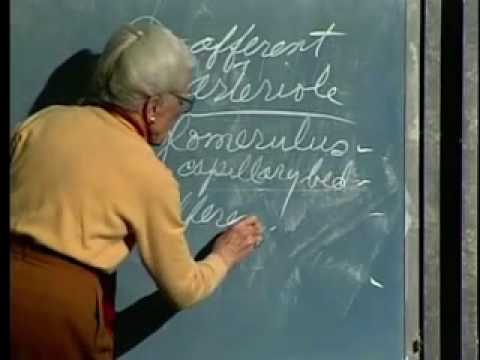 afferent
arteriole
glomerulus
capillary bed
effere